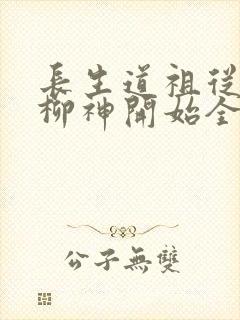 長生道祖從
柳神開始全
公子無雙